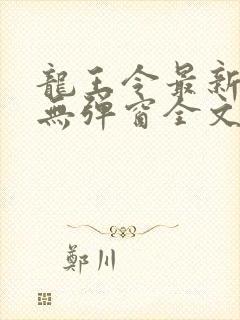 龍王令最新
無彈窗全文
鄭川